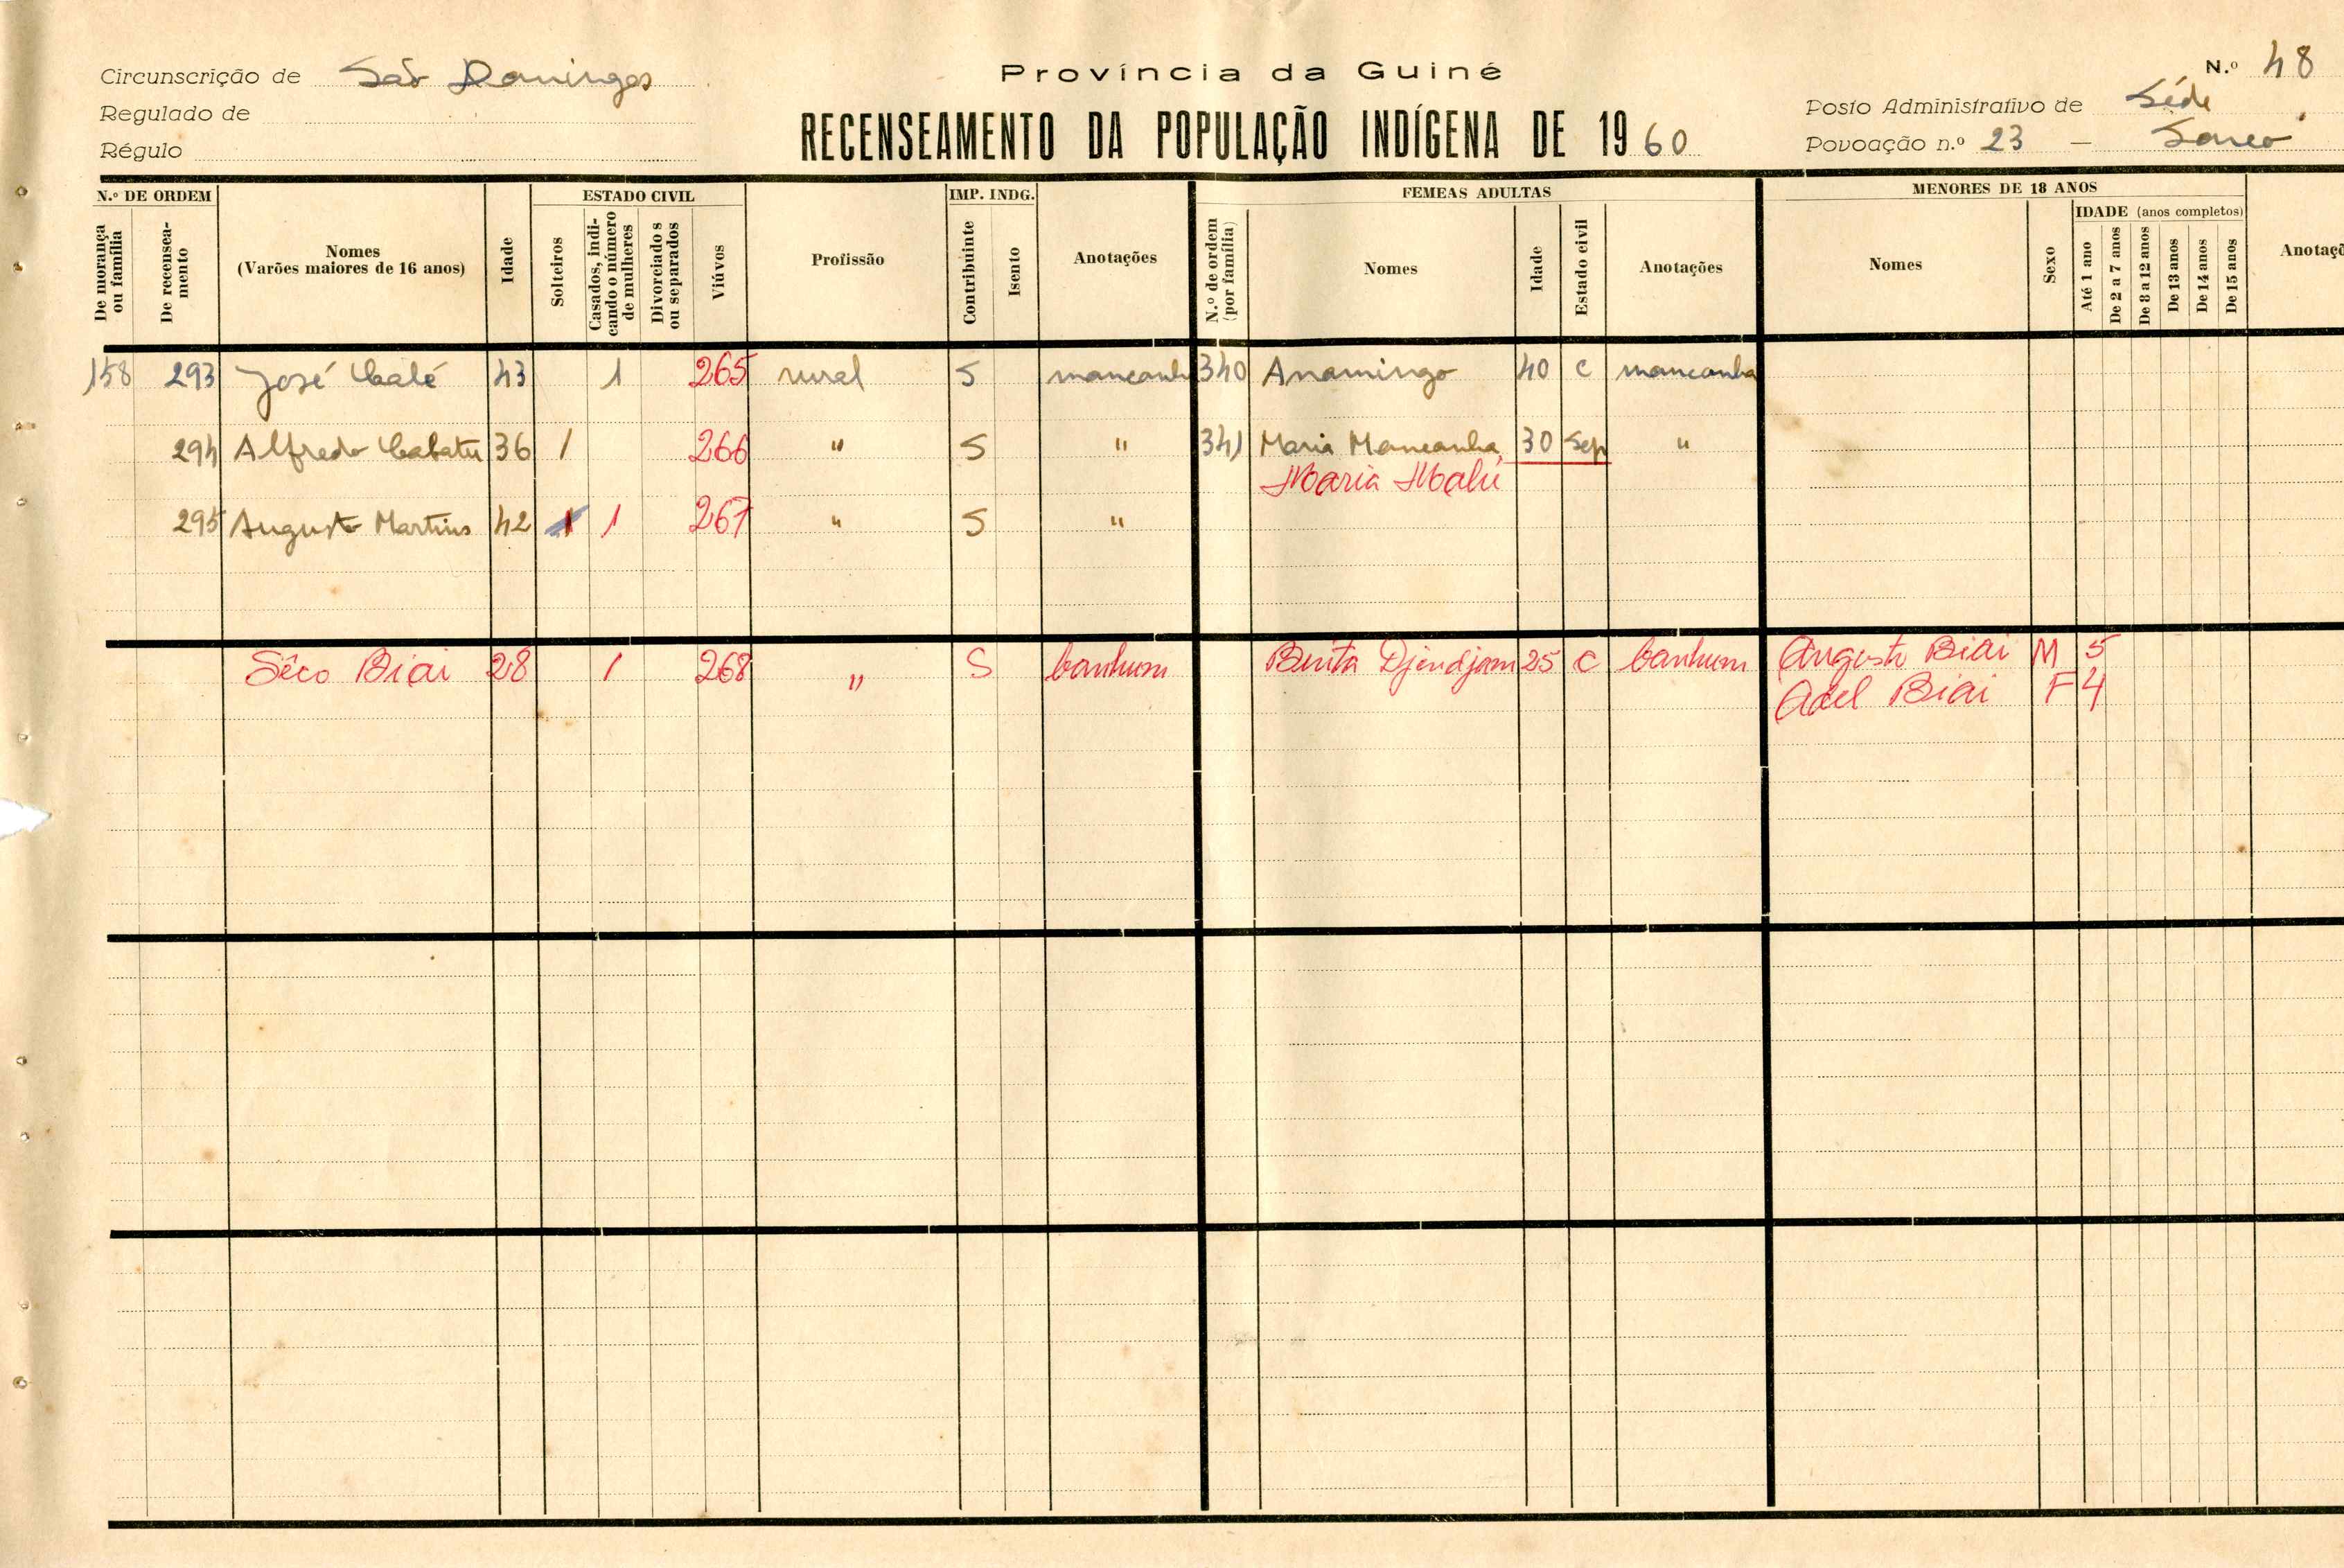 Circunscrição de São Domingos
Regulado de
Régulo
Província da Guiné
RECENSEAMENTO DA POPULAÇÃO INDÍGENA DE 1960
N.º 48
Posto Administrativo de Séde
Povoação n.º 23 —
N.º DE ORDEM
De morança ou família
De recensea-mento
Nomes
(Varões maiores de 16 anos)
Idade
ESTADO CIVIL
Solteiros
Casados, indi-cando o número de mulheres
Divorciados ou separados
Viúvos
Profissão
IMP. INDG.
Contribuinte
Isento
Anotações
FEMEAS ADULTAS
N.º de ordem (por família)
Nomes
Idade
Estado civil
Anotações
MENORES DE 18 ANOS
Nomes
Sexo
IDADE (anos completos)
Até 1 ano
De 2 a 7 anos
De 8 a 12 anos
De 13 anos
De 14 anos
De 15 anos
Anotaçõ
158 293 José Calé 43 1 265 rural S mancanh 340 Anamingo 40 c mancanha
294 Alfredo Cabatu 36 1 266 " S " 341 Maria Mancanha 30 Sep "
Maria Malú
295 Augusto Martins 42 1 1 267 " S "
Sêco Biai 28 1 268 " S banhum Binta Djendjam 25 c banhum Augusto Biai M 5
Adel Biai F 4